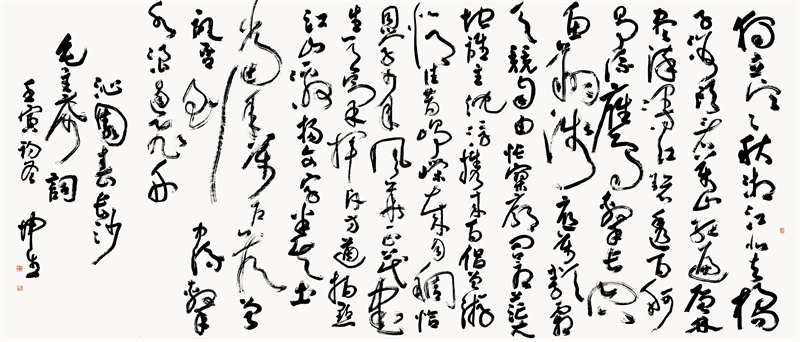 独立寒秋湘江北去橘
子洲头看万山红遍层林
尽染漫江碧透百舸
争流鹰击长空
鱼翔浅底万类霜
天竞自由怅寥廓问苍茫大
地谁主沉浮携来百侣曾游
忆往昔峥嵘岁月稠恰
同学少年风华正茂书
生意气挥斥方遒指点
江山激扬文字粪土
当年万户侯曾
记否到中流击
水浪遏飞舟
沁园春长沙
毛主席词
壬寅初冬坤